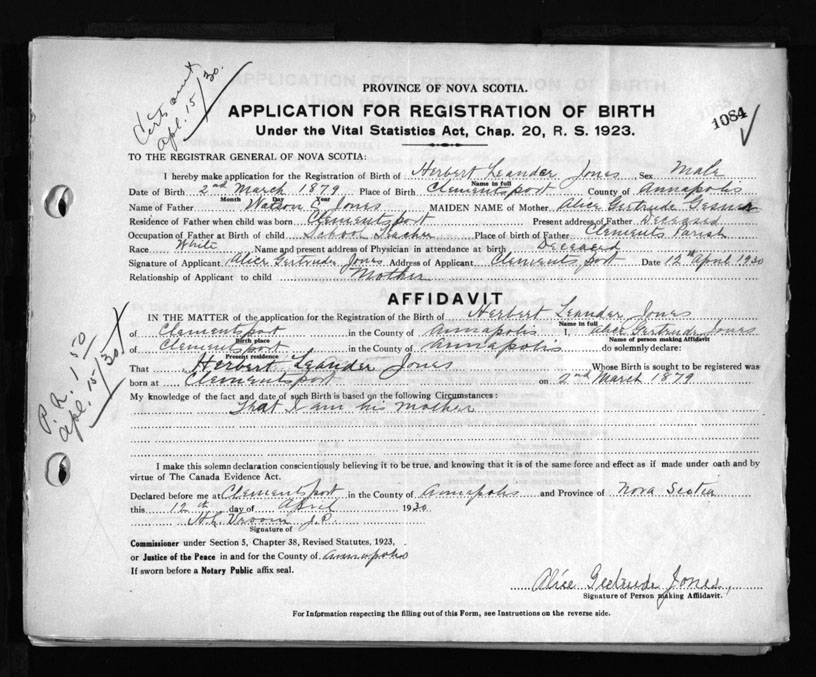 Cert sent
Apl. 15/30.
PROVINCE OF NOVA SCOTIA.
APPLICATION FOR REGISTRATION OF BIRTH
1084
Under the Vital Statistics Act, Chap. 20, R. S. 1923.
TO THE REGISTRAR GENERAL OF NOVA SCOTIA:
I hereby make application for the Registration of Birth of Herbert Leander Jones Sex Male
Name in full
Date of Birth 2nd March 1879 Place of Birth Clementsport County of Annapolis
Month Day Year
Name of Father Watson S Jones MAIDEN NAME of Mother Alice Gertrude Gesner
Residence of Father when child was born Clementsport Present address of Father Deceased
Occupation of Father at Birth of child School Teacher Place of birth of Father Clements Parish
Race White Name and present address of Physician in attendance at birth Deceased
Signature of Applicant Alice Gertrude Jones Address of Applicant Clementsport Date 12th April 1930
Relationship of Applicant to child Mother
AFFIDAVIT
IN THE MATTER of the application for the Registration of the Birth of Herbert Leander Jones
Name in full
of Clementsport in the County of Annapolis I, Alice Gertrude Jones
Birth place Name of person making Affidavit
of Clementsport in the County of Annapolis do solemnly declare:
Present residence
That Herbert Leander Jones Whose Birth is sought to be registered was
born at Clementsport on 2nd March 1879
P.R. 1.50
Apl. 15/30
My knowledge of the fact and date of such Birth is based on the following Circumstances:
That I am his Mother
I make this solemn declaration conscientiously believing it to be true, and knowing that it is of the same force and effect as if made under oath and by
virtue of The Canada Evidence Act.
Declared before me at Clementsport in the County of Annapolis and Province of Nova Scotia
this 12th day of April 1930
H.C. Vroom J.P.
Signature of
Commissioner under Section 5, Chapter 38, Revised Statutes, 1923,
or Justice of the Peace in and for the County of Annapolis
If sworn before a Notary Public affix seal.
Alice Gertrude Jones
Signature of Person making Affidavit.
For Information respecting the filling out of this Form, see Instructions on the reverse side.